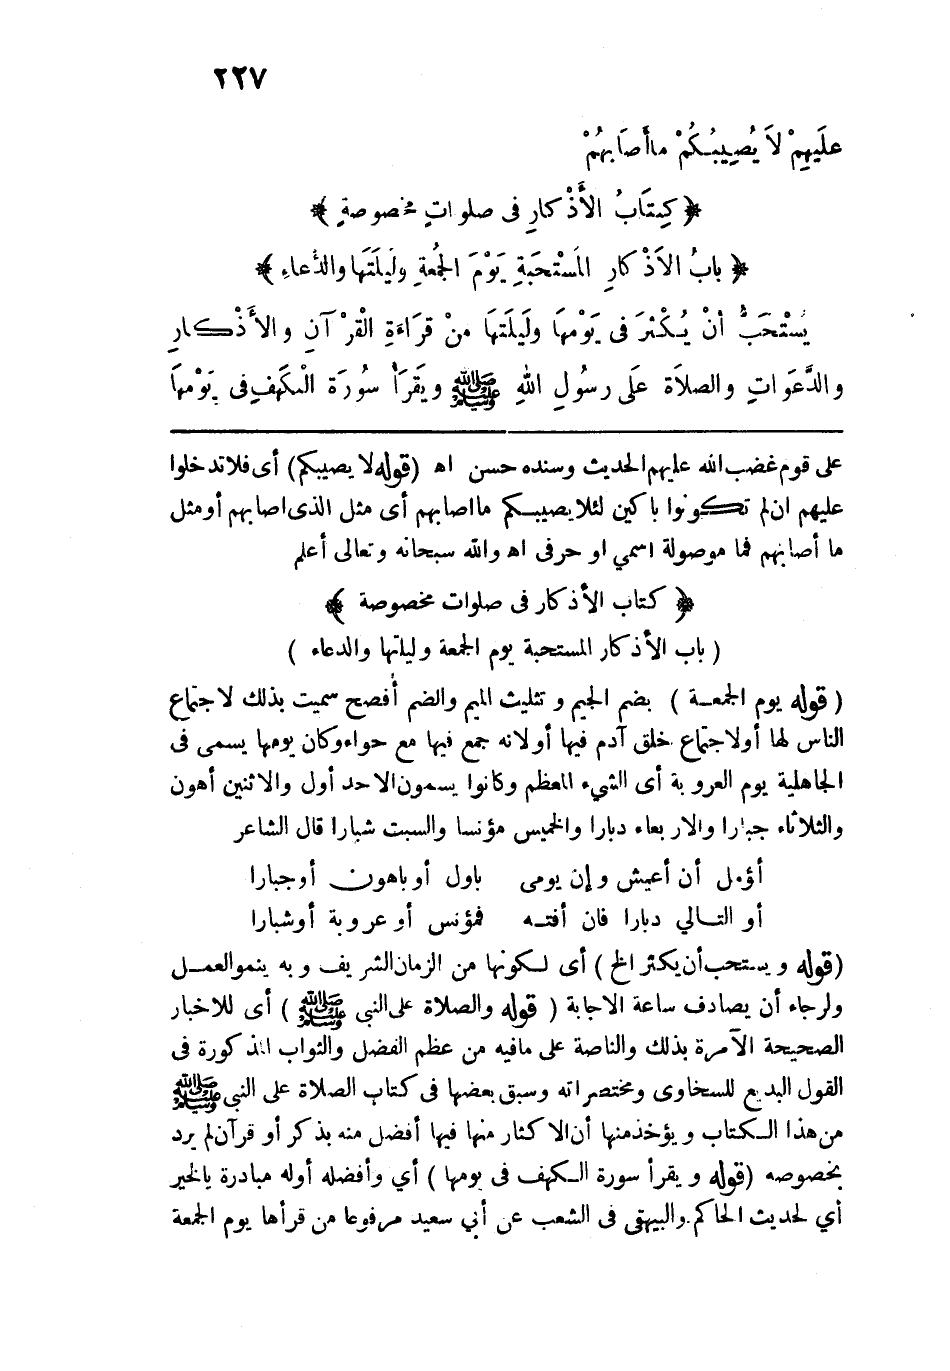 ٢٢٧
عَلَيهِمْ لاَ يُصِيبُكُمْ ماأَصَابهُمْ
﴿ كِتَابُ الأَذْكارِ فى صلواتٍ مخصوصةٍ ﴾
﴿ بابُ الأَذْكارِ المُسْتَحَبةِ يَوْمَ الجُمعةِ ولَيلَتَها والدُّعاءِ ﴾
يُسْتَحَبُّ أنْ يُكْثرَ فى يَوْمها ولَيلَتَها منْ قرَاءَةِ القُرْآنِ والأَذْكارِ
والدَّعَواتِ والصلاَةِ عَلَى رسُولِ اللهِ ﷺ ويَقرَأَ سُورَةَ الْكَهفِ فى يَوْمها
على قوم غضب الله عليهم الحديث وسنده حسن اه (قوله لا يصيبكم) أى فلا تدخلوا
عليهم ان لم تكونوا باكين لئلا يصيبكم ما اصابهم أى مثل الذى اصابهم أو مثل
ما أصابهم فما موصولة اسمي او حرفى اه والله سبحانه وتعالى أعلم
﴿ كتاب الأذكار فى صلوات مخصوصة ﴾
( باب الأذكار المستحبة يوم الجمعة وليلتها والدعاء )
( قوله يوم الجمعة ) بضم الجيم و تثليث الميم والضم أفصح سميت بذلك لاجتماع
الناس لها أو لاجتماع خلق آدم فيها أو لانه جمع فيها مع حواء وكان يومها يسمى فى
الجاهلية يوم العروبة أى الشيء المعظم وكانوا يسمون الاحد أول والاثنين أهون
والثلاثاء جبارا والاربعاء دبارا والخميس مؤنسا والسبت شبارا قال الشاعر
أؤمل أن أعيش وإن يومى باول أو باهون أو جبارا
أو التالي دبارا فان أفته فمؤنس أو عروبة أو شبارا
(قوله ويستحب أن يكثر الخ) أى لكونها من الزمان الشريف وبه ينمو العمل
ولرجاء أن يصادف ساعة الاجابة ( قوله والصلاة على النبى ﷺ ) أى للاخبار
الصحيحة الآمرة بذلك والناصة على مافيه من عظم الفضل والثواب المذكورة فى
القول البديع للسخاوى ومختصراته وسبق بعضها فى كتاب الصلاة على النبى ﷺ
من هذا الكتاب ويؤخذ منها أن الاكثار منها فيها أفضل منه بذكر أو قرآن لم يرد
بخصوصه (قوله ويقرأ سورة الكهف فى يومها ) أي وأفضله أوله مبادرة بالخير
أي لحديث الحاكم والبيهقى فى الشعب عن أبي سعيد مرفوعا من قرأها يوم الجمعة